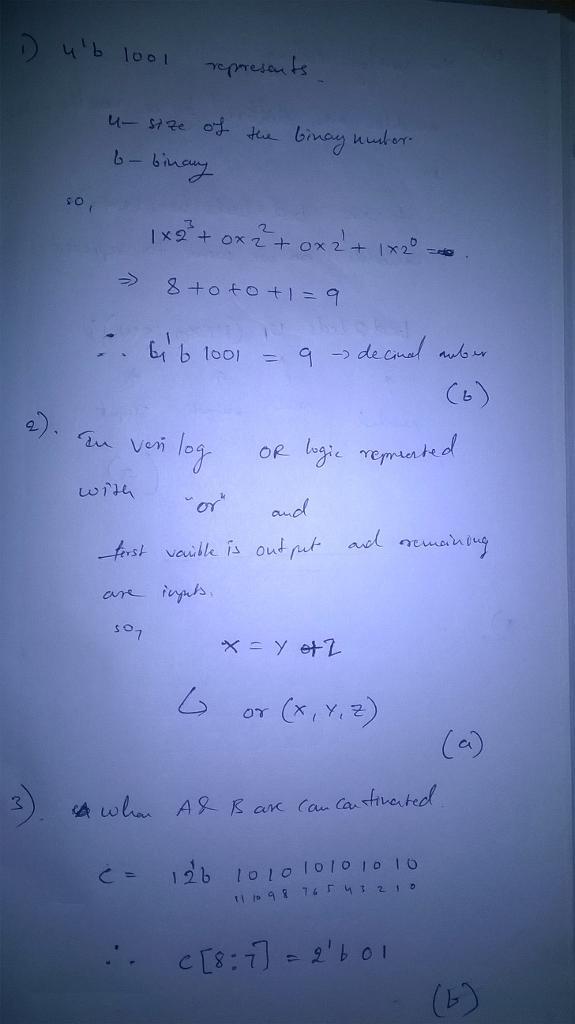 1) 4'b 1001 represents
4- size of the binay number.
b - binary
so,
1x2³ + 0x2² + 0x2¹ + 1x2⁰ =
⇒ 8 + 0 + 0 + 1 = 9
∴ 4'b 1001 = 9 → decimal nuber
(b)
2). In verilog OR logic represented
with "or" and
first vaible is output and remaining
are inputs.
so,
X = Y + Z
↳ or (X, Y, Z)
(a)
3). when A & B are concantinated.
C = 12'b 1010 1010 1010
11 10 9 8 7 6 5 4 3 2 1 0
∴ C[8:7] = 2'b 01
(b)